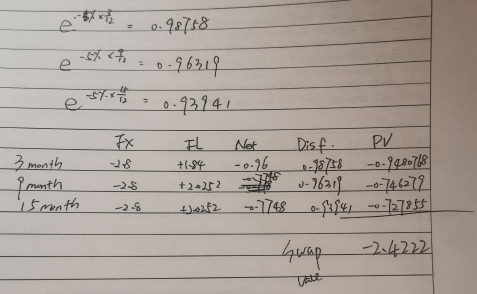 e^-5% × 3/12 = 0.98758
e^-5% × 9/12 = 0.96319
e^-5% × 15/12 = 0.93941
Fx FL Net Disf. PV
3 month -2.8 +1.84 -0.96 0.98758 -0.9480768
9 month -2.8 +2.0252 -0.7748 0.96319 -0.746279
15 month -2.8 +2.0252 -0.7748 0.93941 -0.727855
Swap -2.4222
Value